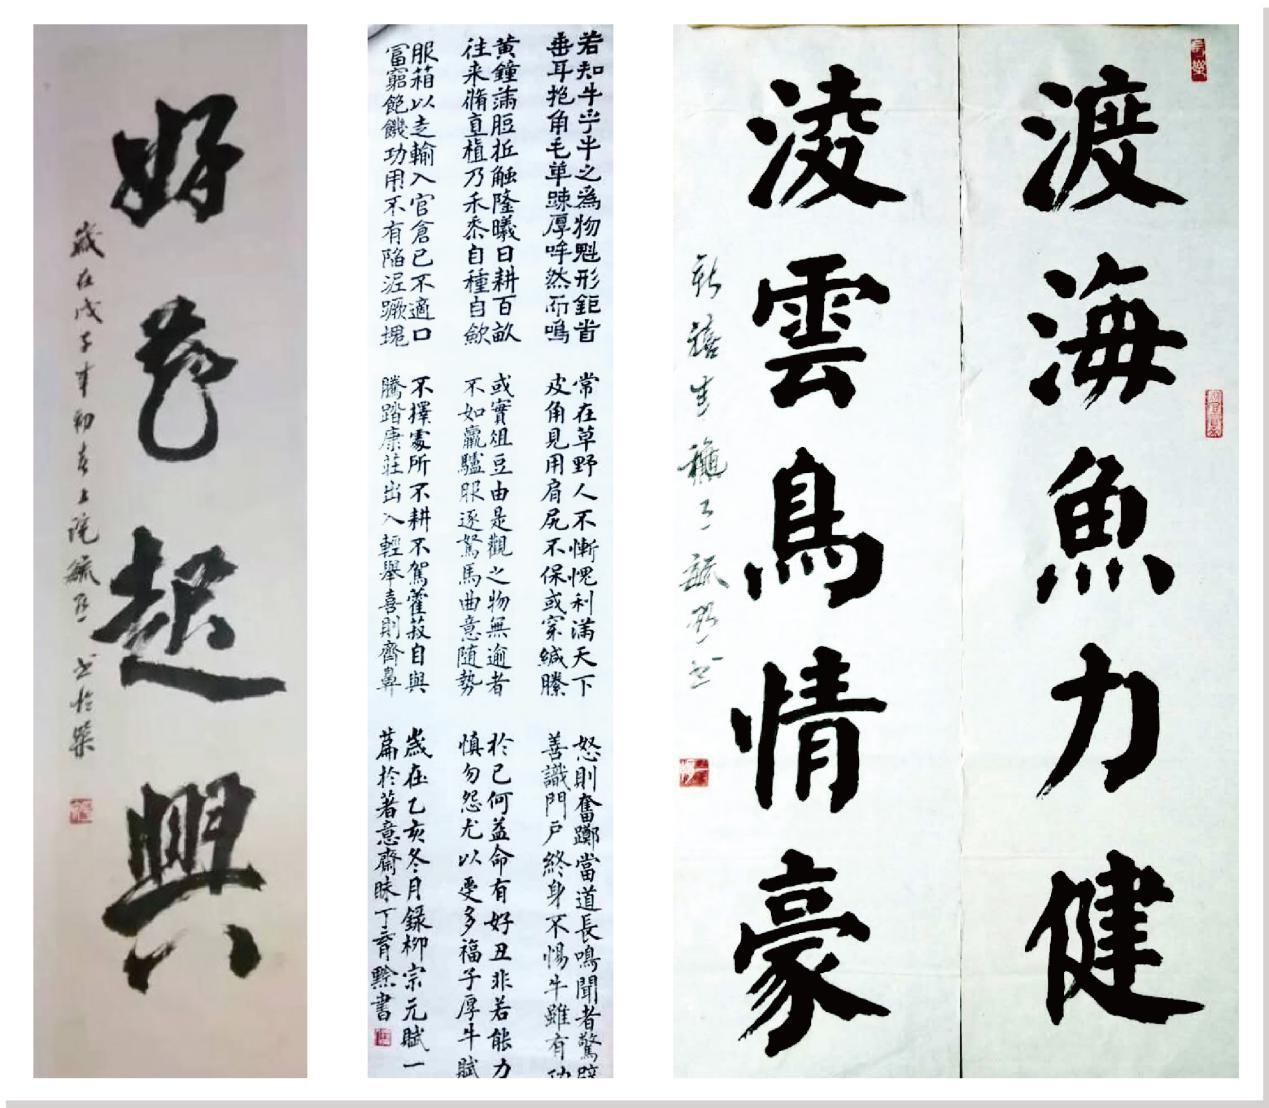 好起興
歲在戊子年初春上浣毓黔書於築
若知牛乎牛之為物魁形鉅首
垂耳抱角毛革疎厚呼然而鳴
黃鐘滿脰抵触隆曦日耕百畝
往来脩直植乃禾黍自種自歛
服箱以走輸入官倉已不適口
冨窮飽饑功用不有陷泥蹶塊
常在草野人不慚愧利滿天下
皮角見用肩尻不保或穿緘縢
或實俎豆由是觀之物無逾者
不如羸驢服逐駑馬曲意隨勢
不擇處所不耕不駕藿菽自與
騰踏康莊出入輕舉喜則齊鼻
怒則奮躑當道長鳴聞者驚辟
善識門戶終身不惕牛雖有功
於己何益命有好丑非若能力
慎勿怨尤以受多福子厚牛賦
歲在乙亥冬月錄柳宗元賦一
篇於著意齋昧丁育黔書
渡海魚力健
淩雲鳥情豪
毓黔書